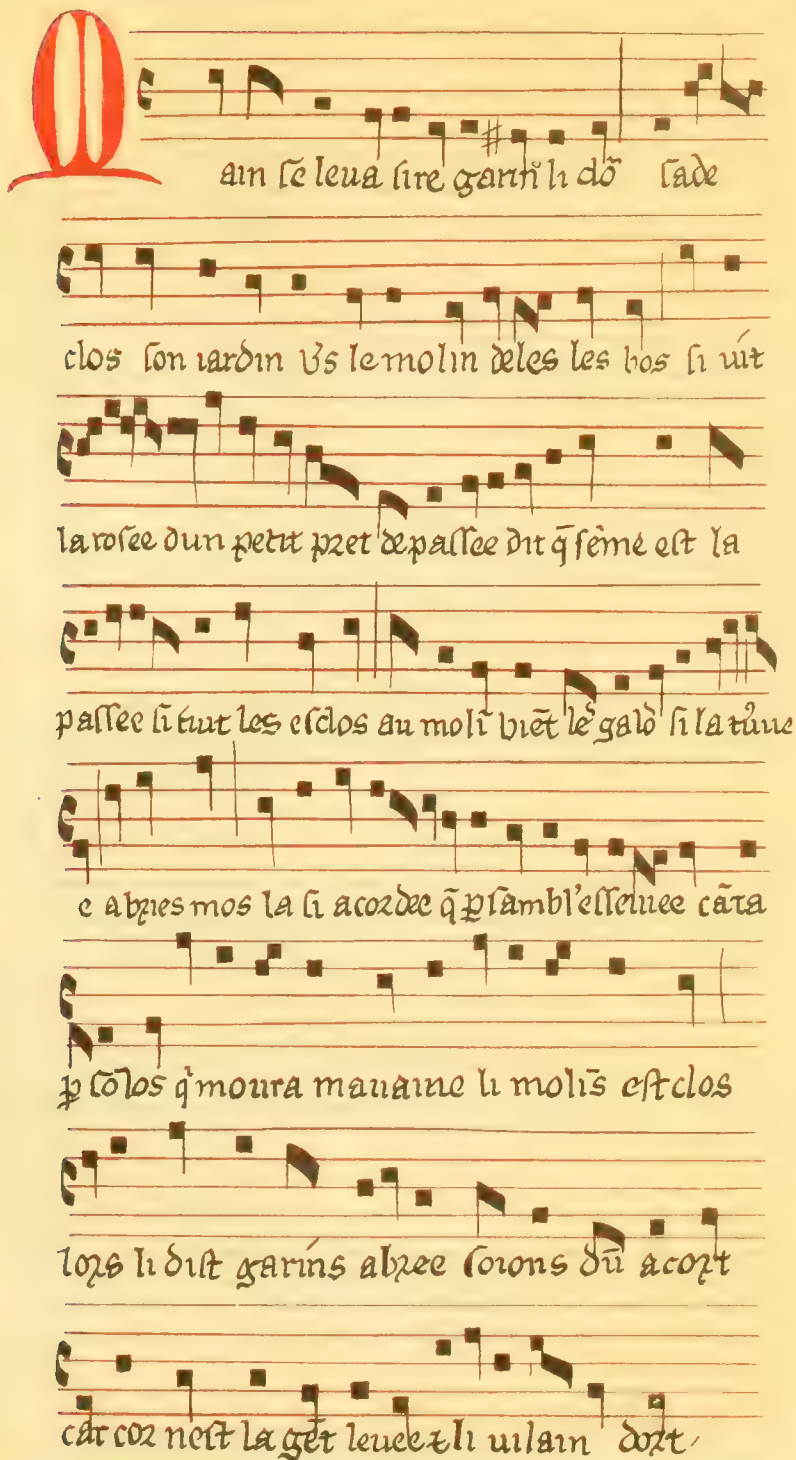 Main se leua sire garin̄ li dō sade
clos son iardin v̓s le molin deles les bos si uit
la rosee dun petit pret depassee dit q̄ feme est la
passee si siut les esclos au moli̅ viēt le galo̅ si la
e abries mos la si acordee q̄ ꝑ sambl'esseulee cāta
ꝑ so̅ los q̓ moura mauaine li molis̄ est clos
lors li dist garins abree soions du̅ acort
car cor nest la ge̅t leuee ⁊ li uilain dort